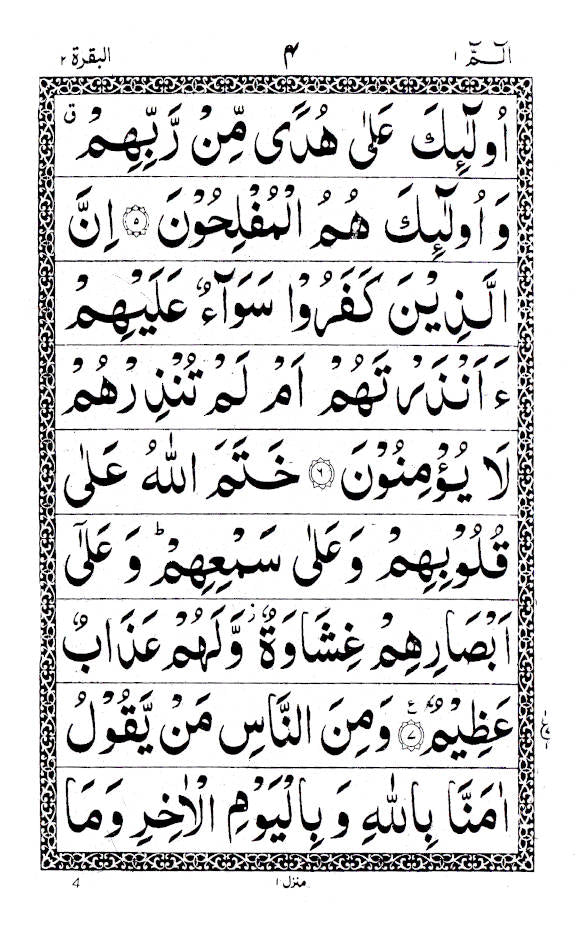 الٓمّٓ ١ ۴ البقرة ٢
اُولٰٓئِكَ عَلٰى هُدًى مِّنْ رَّبِّهِمْ ۗق
وَاُولٰٓئِكَ هُمُ الْمُفْلِحُوْنَ ۝٥ اِنَّ
الَّذِيْنَ كَفَرُوْا سَوَآءٌ عَلَيْهِمْ
ءَاَنْذَرْتَهُمْ اَمْ لَمْ تُنْذِرْهُمْ
لَا يُؤْمِنُوْنَ ۝٦ خَتَمَ اللّٰهُ عَلٰى
قُلُوْبِهِمْ وَعَلٰى سَمْعِهِمْ ؕ وَعَلٰٓى
اَبْصَارِهِمْ غِشَاوَةٌ ز وَّلَهُمْ عَذَابٌ
عَظِيْمٌ ۝٧ ع وَمِنَ النَّاسِ مَنْ يَّقُوْلُ
اٰمَنَّا بِاللّٰهِ وَبِالْيَوْمِ الْاٰخِرِ وَمَا
منزل ١
4